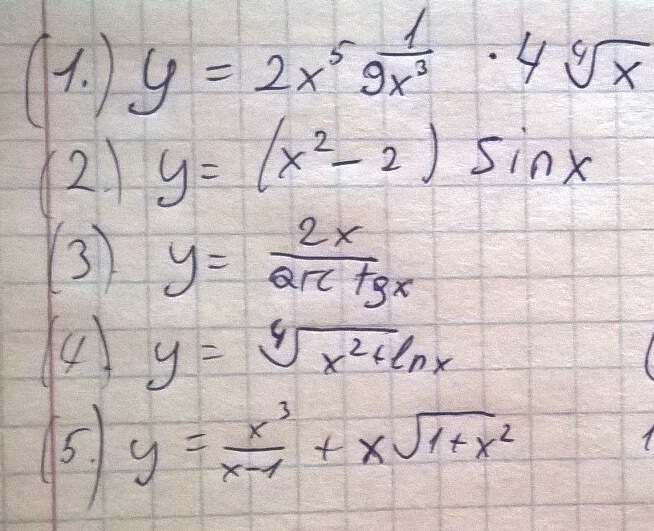 (1.) y = 2x⁵ 1/9x³ · 4 ∜x
(2.) y = (x² - 2) sin x
(3) y = 2x/arc tgx
(4) y = ∜x²+lnx
(5.) y = x³/x-1 + x√1+x²